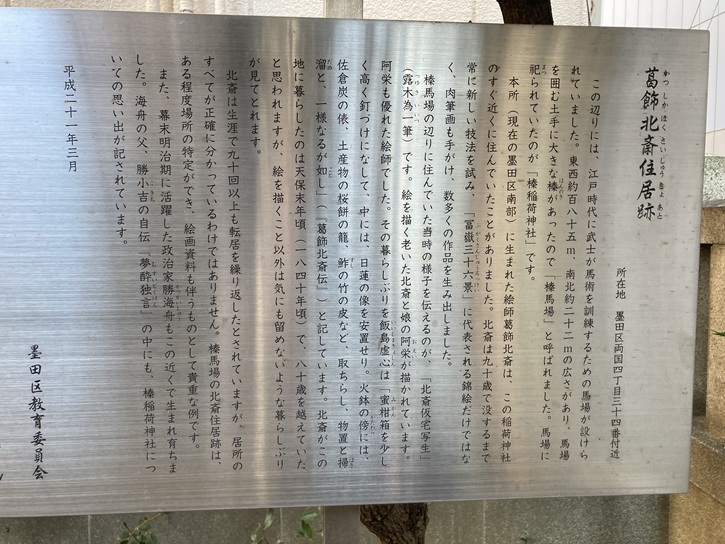 葛飾北斎住居跡
かつしかほくさいじゅうきょあと
所在地 墨田区両国四丁目三十四番付近
この辺りには、江戸時代に武士が馬術を訓練するための馬場が設けら
れていました。東西約百八十五m、南北約二十二mの広さがあり、馬場
を囲む土手に大きな榛があったので「榛馬場」と呼ばれました。馬場に
祀られていたのが「榛稲荷神社」です。
本所（現在の墨田区南部）に生まれた絵師葛飾北斎は、この稲荷神社
のすぐ近くに住んでいたことがありました。北斎は九十歳で没するまで
常に新しい技法を試み、「冨嶽三十六景」に代表される錦絵だけではな
く、肉筆画も手がけ、数多くの作品を生み出しました。
榛馬場の辺りに住んでいた当時の様子を伝えるのが、「北斎仮宅写生」
（露木為一筆）です。絵を描く老いた北斎と娘の阿栄が描かれています。
阿栄も優れた絵師でした。その暮らしぶりを飯島虚心は「蜜柑箱を少し
く高く釘づけになして、中には、日蓮の像を安置せり。火鉢の傍には、
佐倉炭の俵、土産物の桜餅の籠、鮓の竹の皮など、取ちらし、物置と掃
溜と、一様なるが如し」（『葛飾北斎伝』）と記しています。北斎がこの
地に暮らしたのは天保末年頃（一八四十年頃）で、八十歳を越えていた
と思われますが、絵を描くこと以外は気にも留めないような暮らしぶり
が見てとれます。
北斎は生涯で九十回以上も転居を繰り返したとされていますが、居所の
すべてが正確に分かっているわけではありません。榛馬場の北斎住居跡は、
ある程度場所の特定ができ、絵画資料も伴うものとして貴重な例です。
また、幕末明治期に活躍した政治家勝海舟もこの近くで生まれ育ちま
した。海舟の父、勝小吉の自伝『夢酔独言』の中にも、榛稲荷神社につ
いての思い出が記されています。
平成二十一年三月
墨田区教育委員会